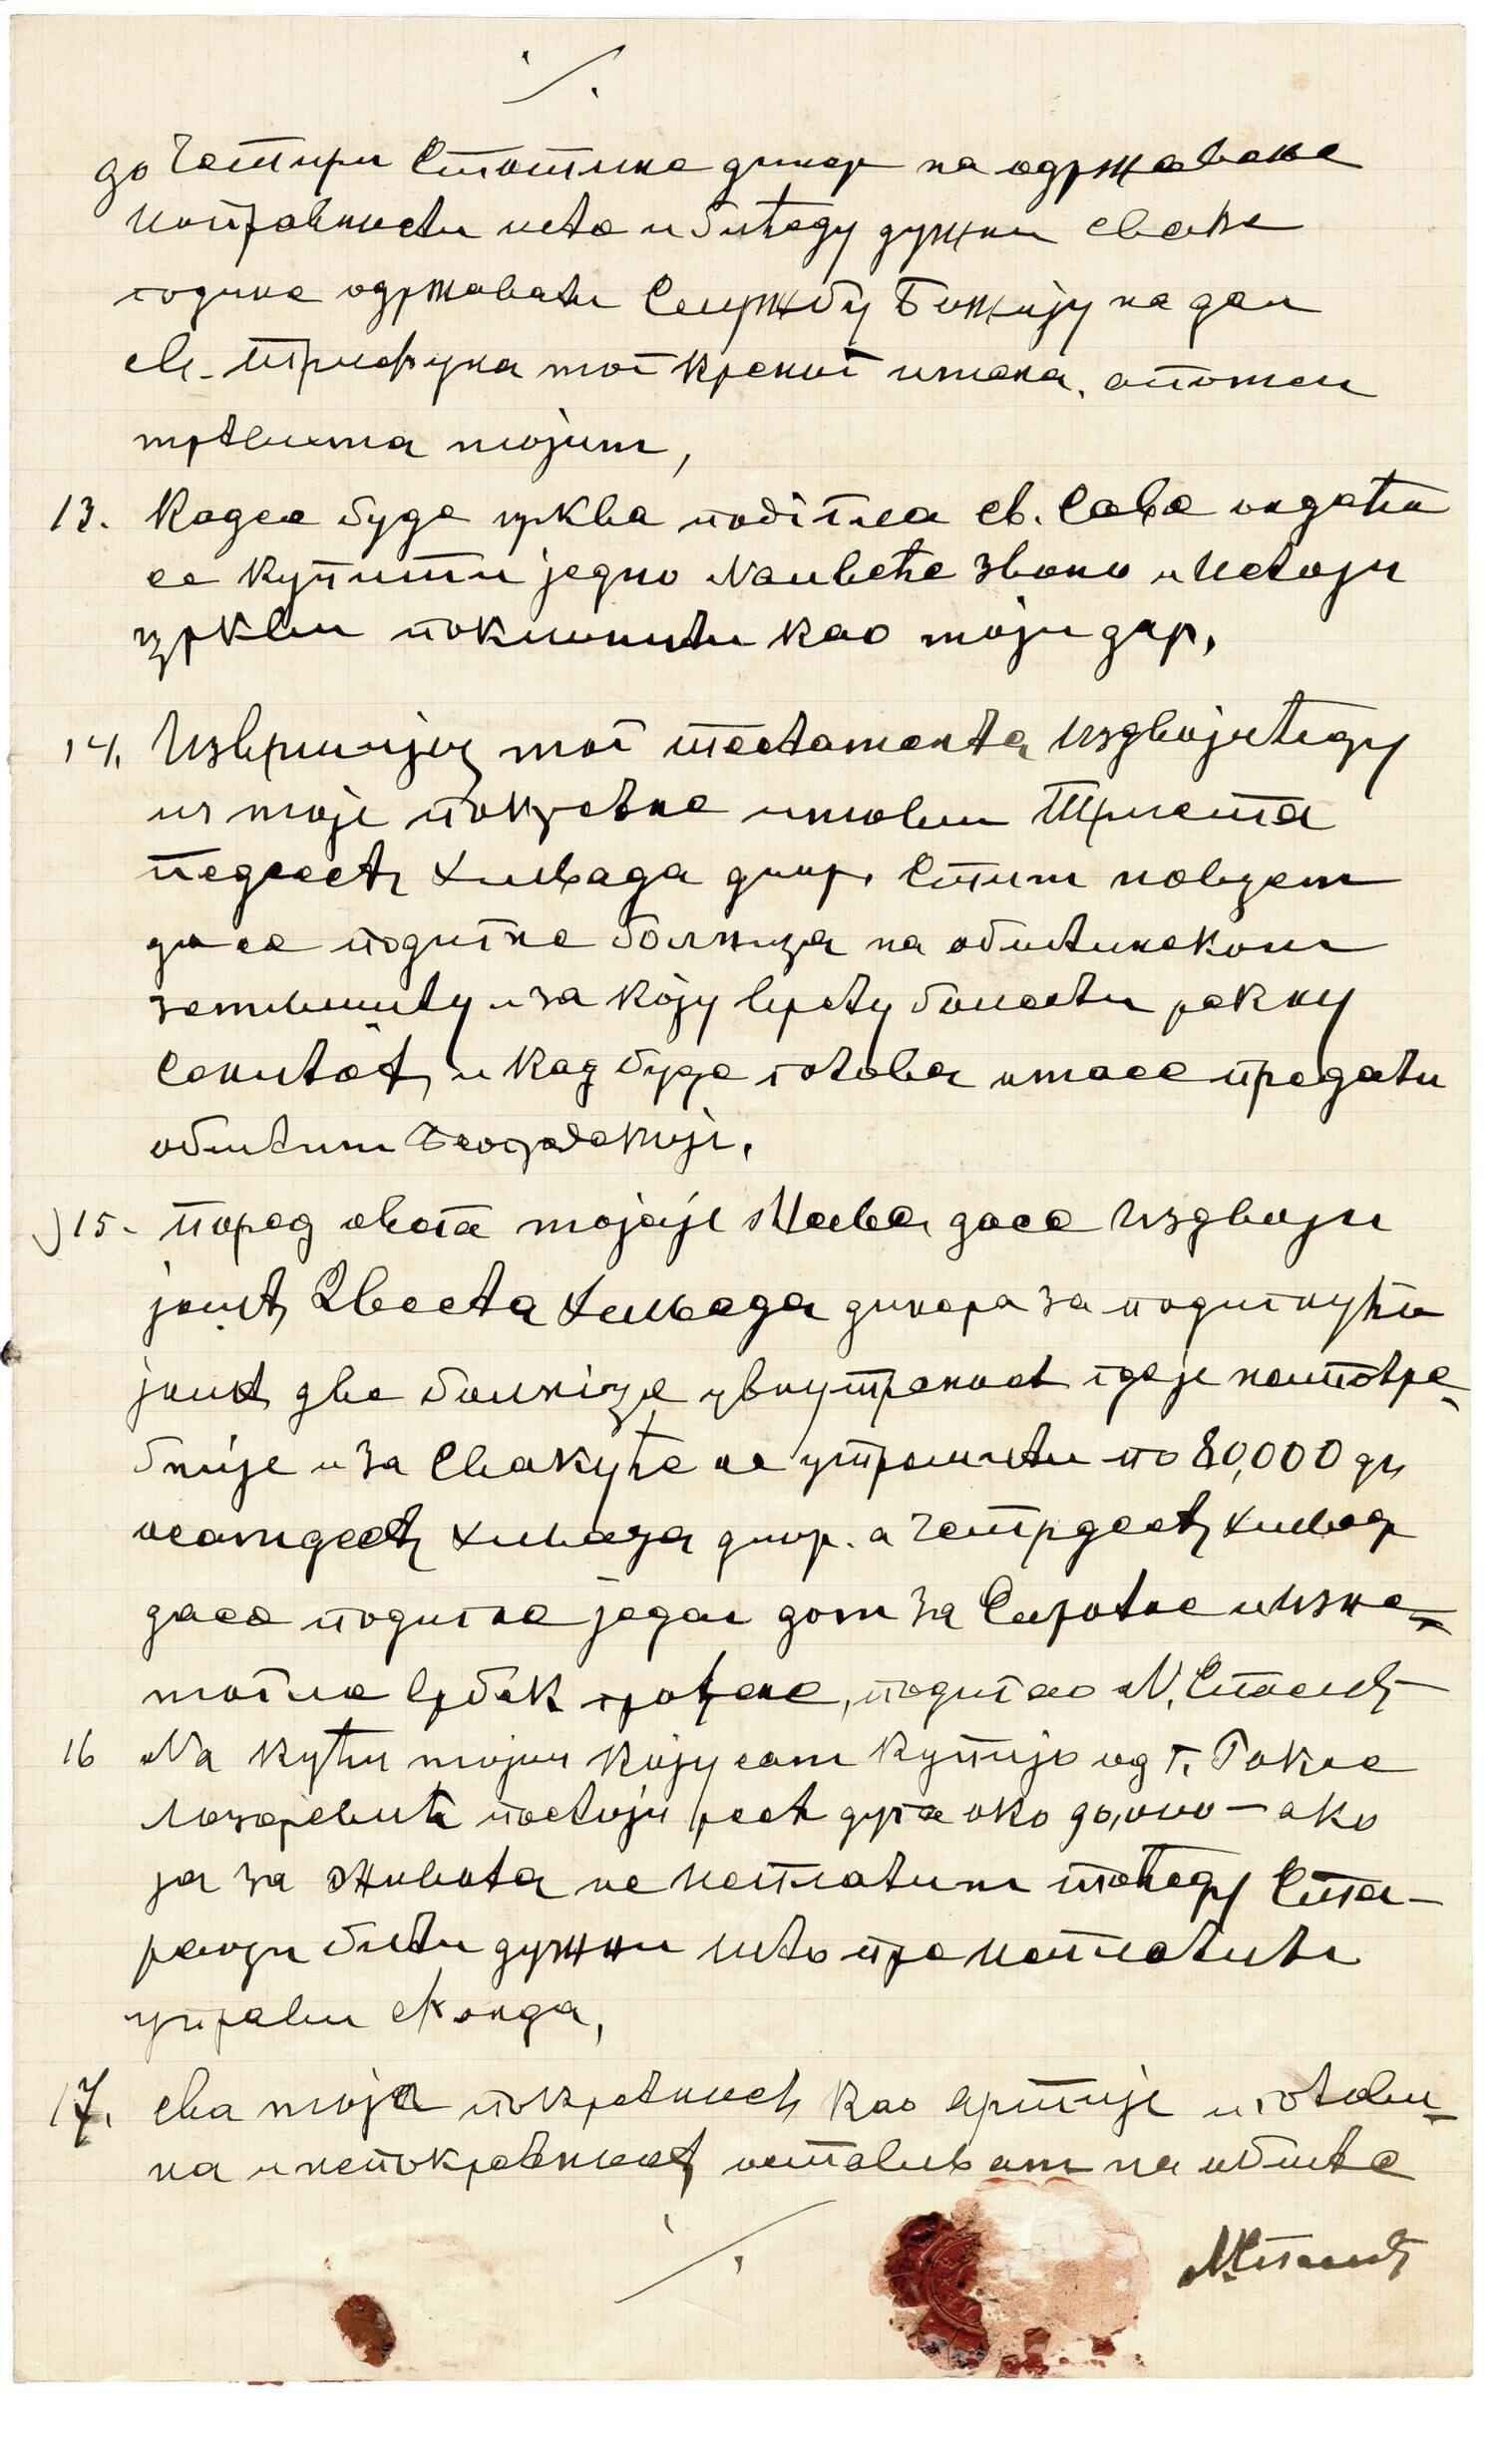 ./.
до Четири Стотине динар на одржавање
исправности исте и биће ду дужни сваке
године одржавати Службу Божију на дан
св. Трифуна мог крсног имена, а помен
мртвима мојим,
13. Кадсе буде црква подігла св. Саве онда ће
се купити једно Највеће звоно и Истој
цркви поклонити као мој дар,
14. Извршиоци мог тестамента Издвојићеду
из моје покретне имовине Триста
педесетъ хиљада динар, Стим новцем
да се подигне болница на обштинском
земљишту и за коју врсту болести рекну
Санитет, и кад буде готова има се предати
обштини Београдској.
15. поред овога моја је Жеља да се Издвоји
јоштъ Двеста хиљада динара за подигнути
јошт две болніце у внутреност где је најпотре
бније и за Сваку ће се утрошити по 80,000 ди
осамдесетъ хиљада динар. а Четрдесетъ хиљад
да се подигне један дом за Сироте и Изне=
могле Србск грађане, подигао Н, Спасић
16 На кући мојој коју сам купијо од Г. Ђокие
Лазаревића постоји рест дуга око 90,000 — ако
ја за Живота не Исплатим то ћеду Ста-
раоци бити дужни исто пре Исплатити
управи Фонда,
17. сва моја покретност као артије и готови=
на и непокретностъ остављам на обште
./.
Н. Спасић